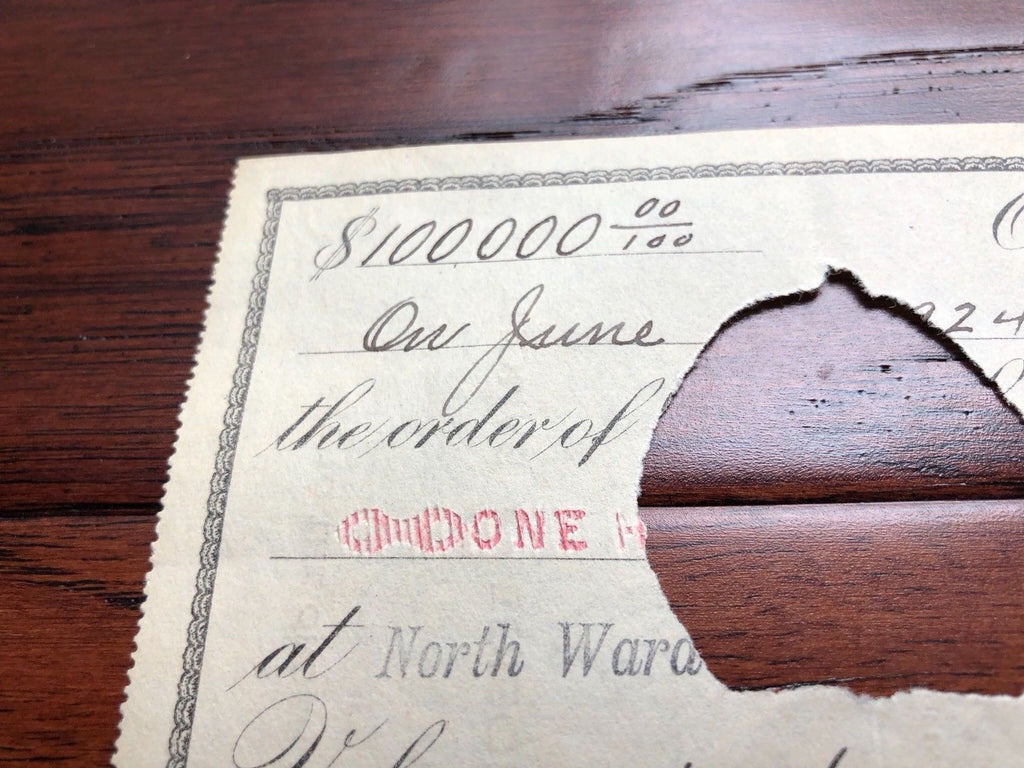 $100,000 00/100
On June 924
the order of
ONE
at North Ward